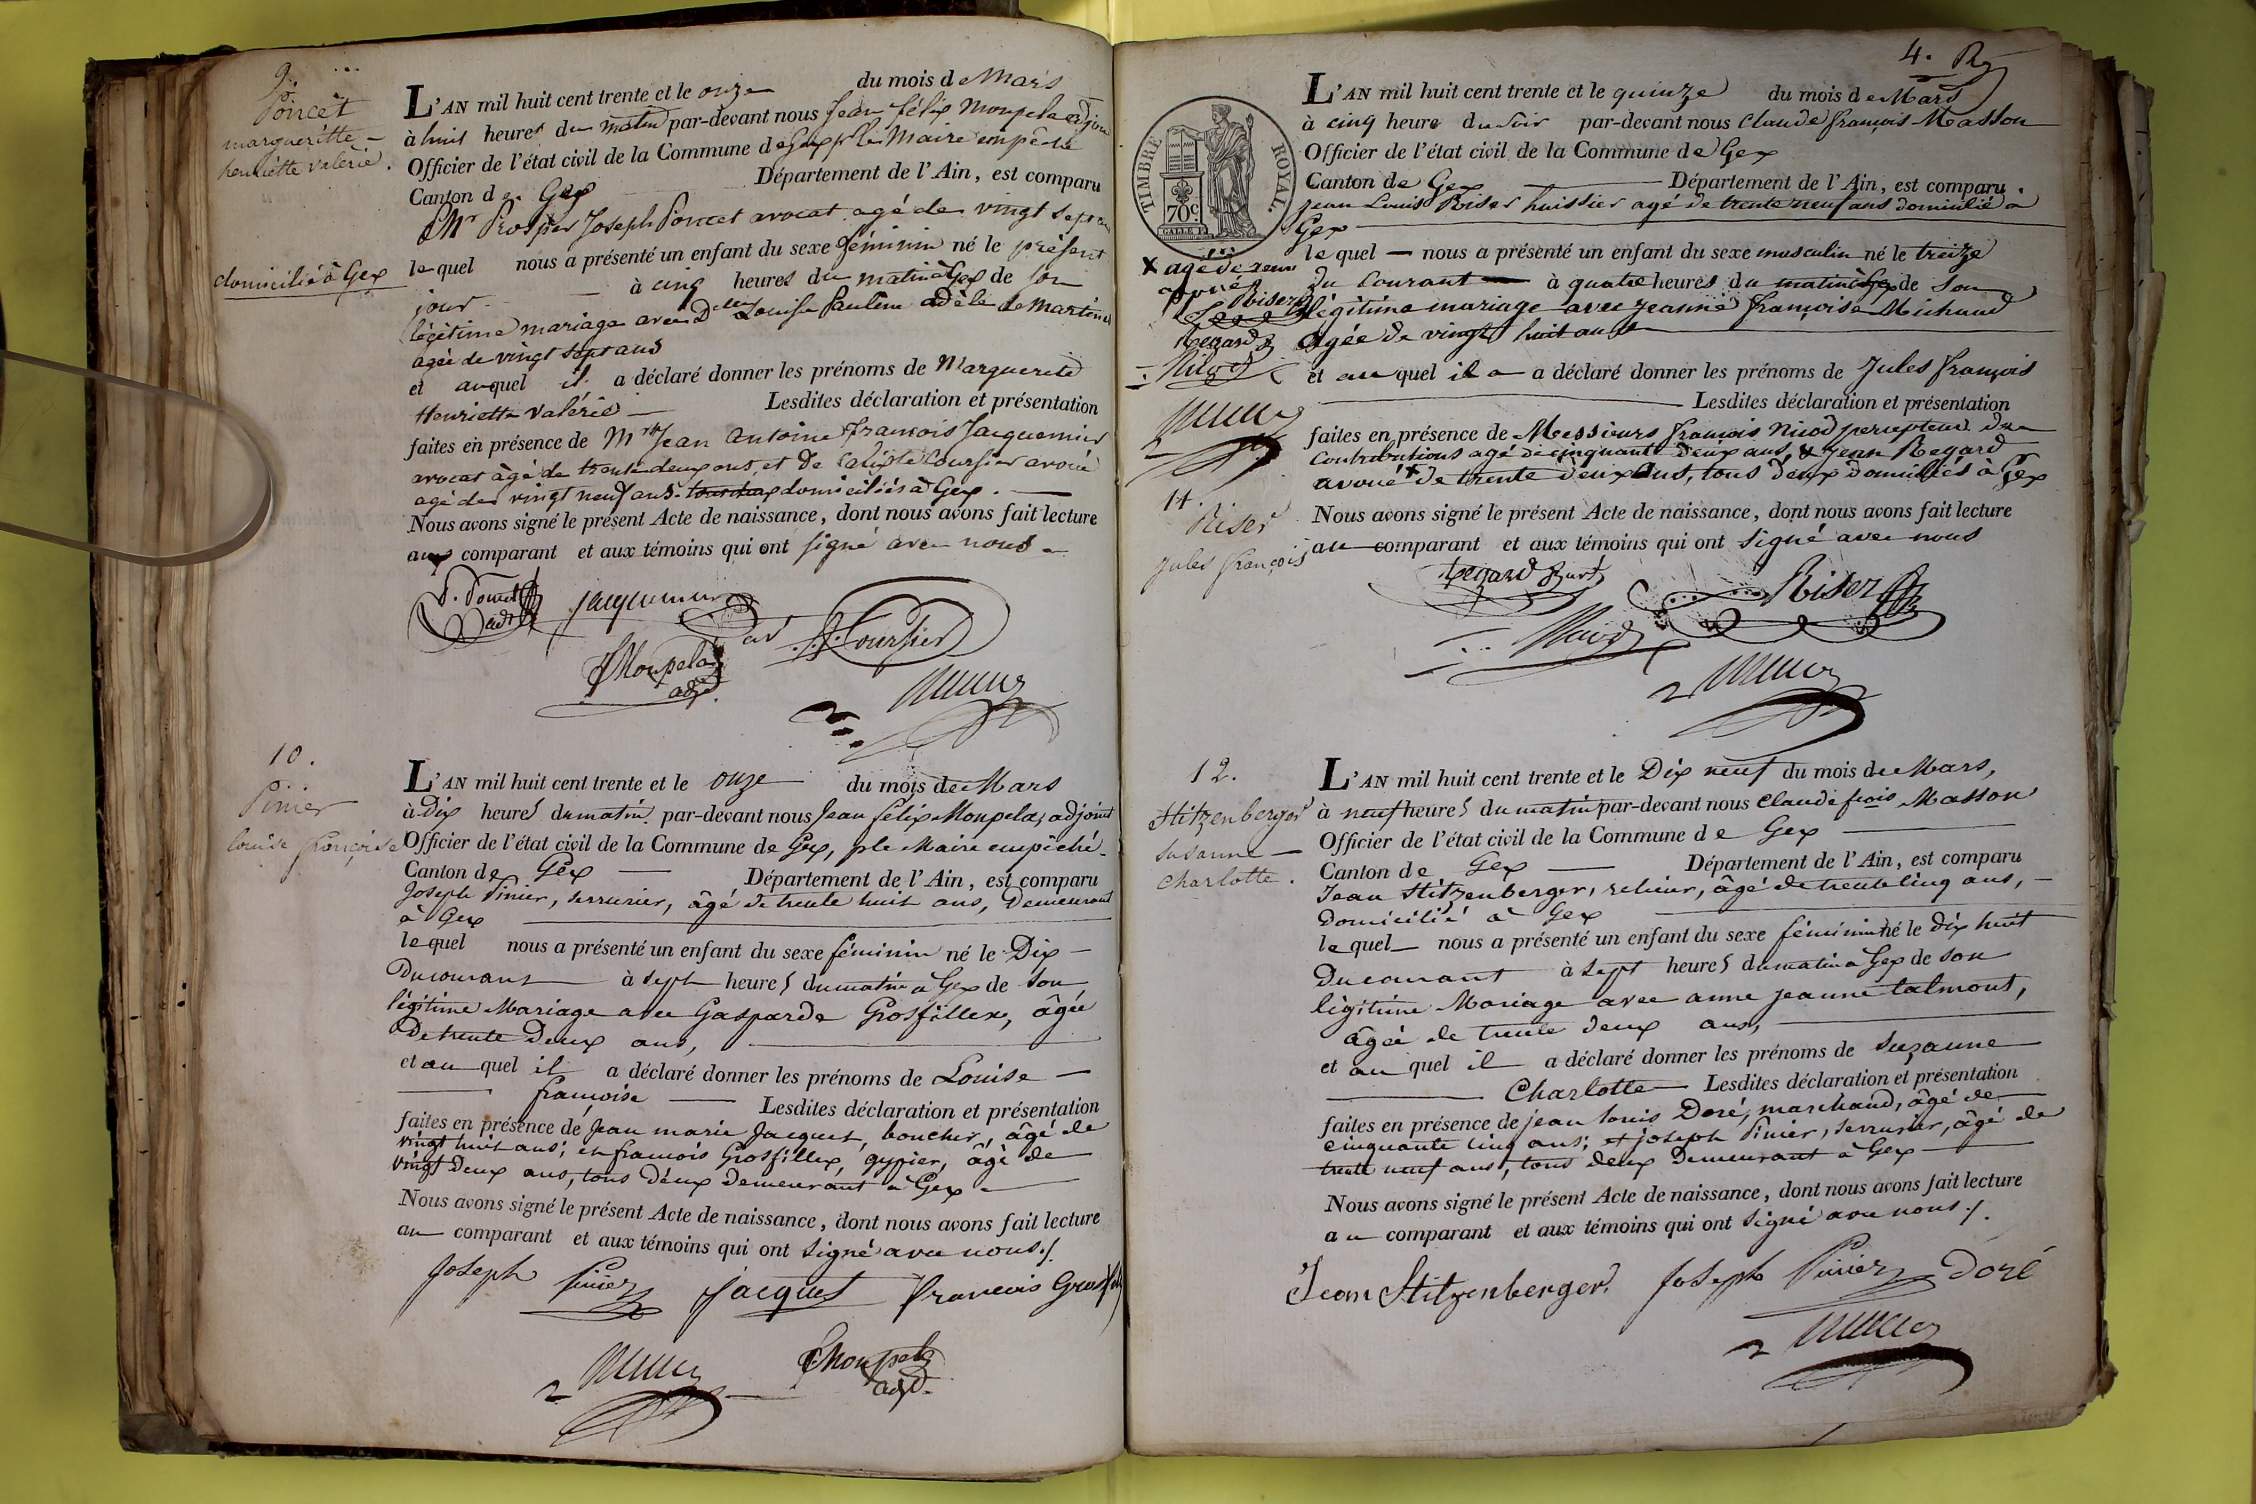 9.
Poncet
margueritte
henriette valérie.
domicilié à Gex
L'AN mil huit cent trente et le onze du mois de Mars
à huit heures du matin par-devant nous Jean félix Monpela adjoint
Officier de l'état civil de la Commune de Gex pr le Maire empêché
Canton de Gex Département de l'Ain, est comparu
Mr Prosper Joseph Poncet avocat agé de vingt sept ans
lequel nous a présenté un enfant du sexe féminin né le présent
jour à cinq heures du matin à Gex de son
légitime mariage avec Dlle Louise Pauline adèle de Martine
agée de vingt sept ans
et auquel il a déclaré donner les prénoms de Marguerite
Henriette Valérie Lesdites déclaration et présentation
faites en présence de Mrs Jean Antoine François Jacquemier
avocat âgé de trente deux ans, et de Calixte Coursier avoué
agé de vingt neuf ans domiciliés à Gex.
Nous avons signé le présent Acte de naissance, dont nous avons fait lecture
aux comparant et aux témoins qui ont signé avec nous
P. Poncet
jacquemier
Monpela
adj.
Coursier
10.
Pinier
louise françoise
L'AN mil huit cent trente et le onze du mois de Mars
à Dix heures du matin par-devant nous Jean félix Monpelaz adjoint
Officier de l'état civil de la Commune de Gex, p le Maire empêché
Canton de Gex Département de l'Ain, est comparu
Joseph Pinier, serrurier, âgé de trente huit ans, Demeurant
à Gex
lequel nous a présenté un enfant du sexe féminin né le Dix
Du courant à sept heures du matin à Gex de son
légitime Mariage avec Gasparde Grosfillex, âgée
De trente Deux ans,
et au quel il a déclaré donner les prénoms de Louise
françoise Lesdites déclaration et présentation
faites en présence de Jean marie Jacquet, boucher, âgé de
vingt huit ans; et françois Grosfillex, gypier, âgé de
vingt Deux ans, tous deux demeurant à Gex
Nous avons signé le présent Acte de naissance, dont nous avons fait lecture
au comparant et aux témoins qui ont signé avec nous./.
Joseph Pinier Jacquet francois Grosfillex
Monpela
adj.
4.
TIMBRE ROYAL.
70c
L'AN mil huit cent trente et le quinze du mois de Mars
à cinq heure du soir par-devant nous Claude françois Masson
Officier de l'état civil de la Commune de Gex
Canton de Gex Département de l'Ain, est comparu
jean Louis Riser huissier agé de trente neuf ans domicilié à
Gex
lequel nous a présenté un enfant du sexe masculin né le treize
du courant à quatre heures du matin à Gex de son
légitime mariage avec jeanne françoise Michaud
agée de vingt huit ans
et au quel il a déclaré donner les prénoms de Jules françois
Lesdites déclaration et présentation
faites en présence de Messieurs françois Nicod percepteur des
contributions agé de cinquante deux ans, & jean Regard
avoué x de trente deux ans, tous deux domiciliés à Gex
Nous avons signé le présent Acte de naissance, dont nous avons fait lecture
au comparant et aux témoins qui ont signé avec nous
x agé
Riser
Regard
Nicod
11.
Riser
jules françois
Regard
Riser
Nicod
12.
Stitzenberger
susanne
charlotte.
L'AN mil huit cent trente et le Dix neuf du mois de Mars,
à neuf heures du matin par-devant nous claude fcois Masson
Officier de l'état civil de la Commune de Gex
Canton de Gex Département de l'Ain, est comparu
Jean Stitzenberger, relieur, âgé de trente cinq ans,
Domicilié à Gex
lequel nous a présenté un enfant du sexe féminin né le dix huit
Du courant à sept heures du matin à Gex de son
légitime Mariage avec anne jeanne talmont,
âgée de trente deux ans,
et au quel il a déclaré donner les prénoms de Suzanne
Charlotte Lesdites déclaration et présentation
faites en présence de jean louis Doré, marchand, âgé de
cinquante cinq ans; et joseph Pinier, serrurier, âgé de
trente neuf ans, tous deux Demeurant à Gex
Nous avons signé le présent Acte de naissance, dont nous avons fait lecture
au comparant et aux témoins qui ont signé avec nous./.
Jean Stitzenberger. Joseph Pinier Doré